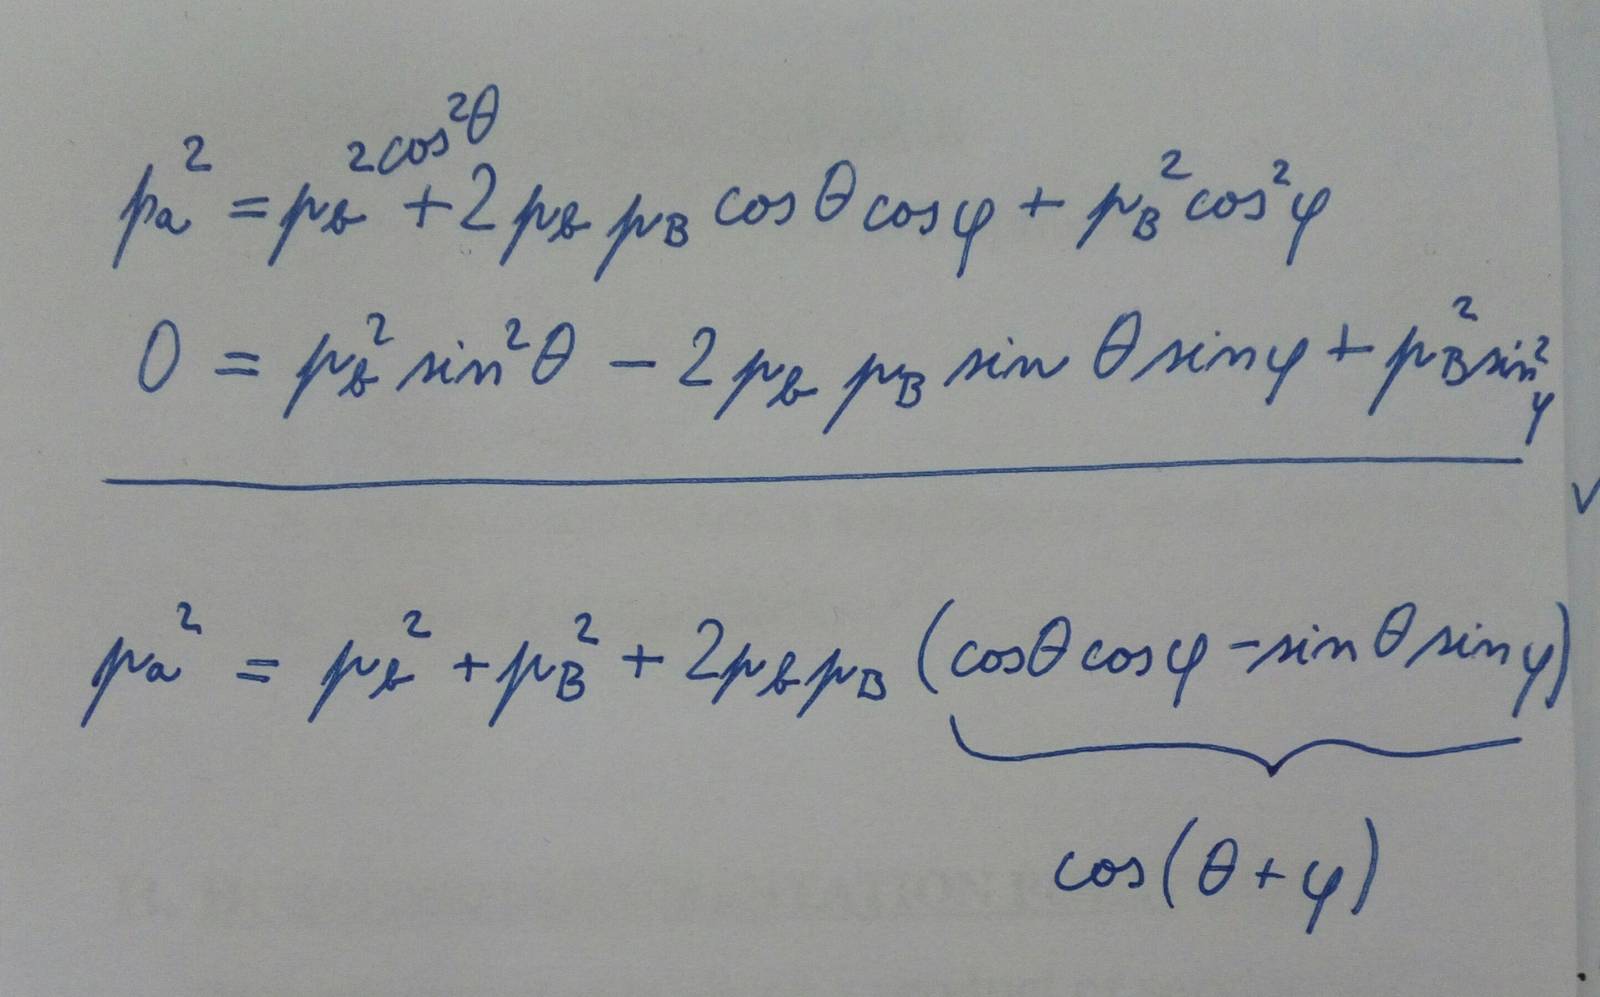 pₐ² = p_b² cos²θ + 2 p_b p_B cosθ cosφ + p_B² cos²φ
0 = p_b² sin²θ − 2 p_b p_B sin θ sinφ + p_B² sin²φ
pₐ² = p_b² + p_B² + 2 p_b p_B (cosθ cosφ − sin θ sinφ)
cos(θ + φ)